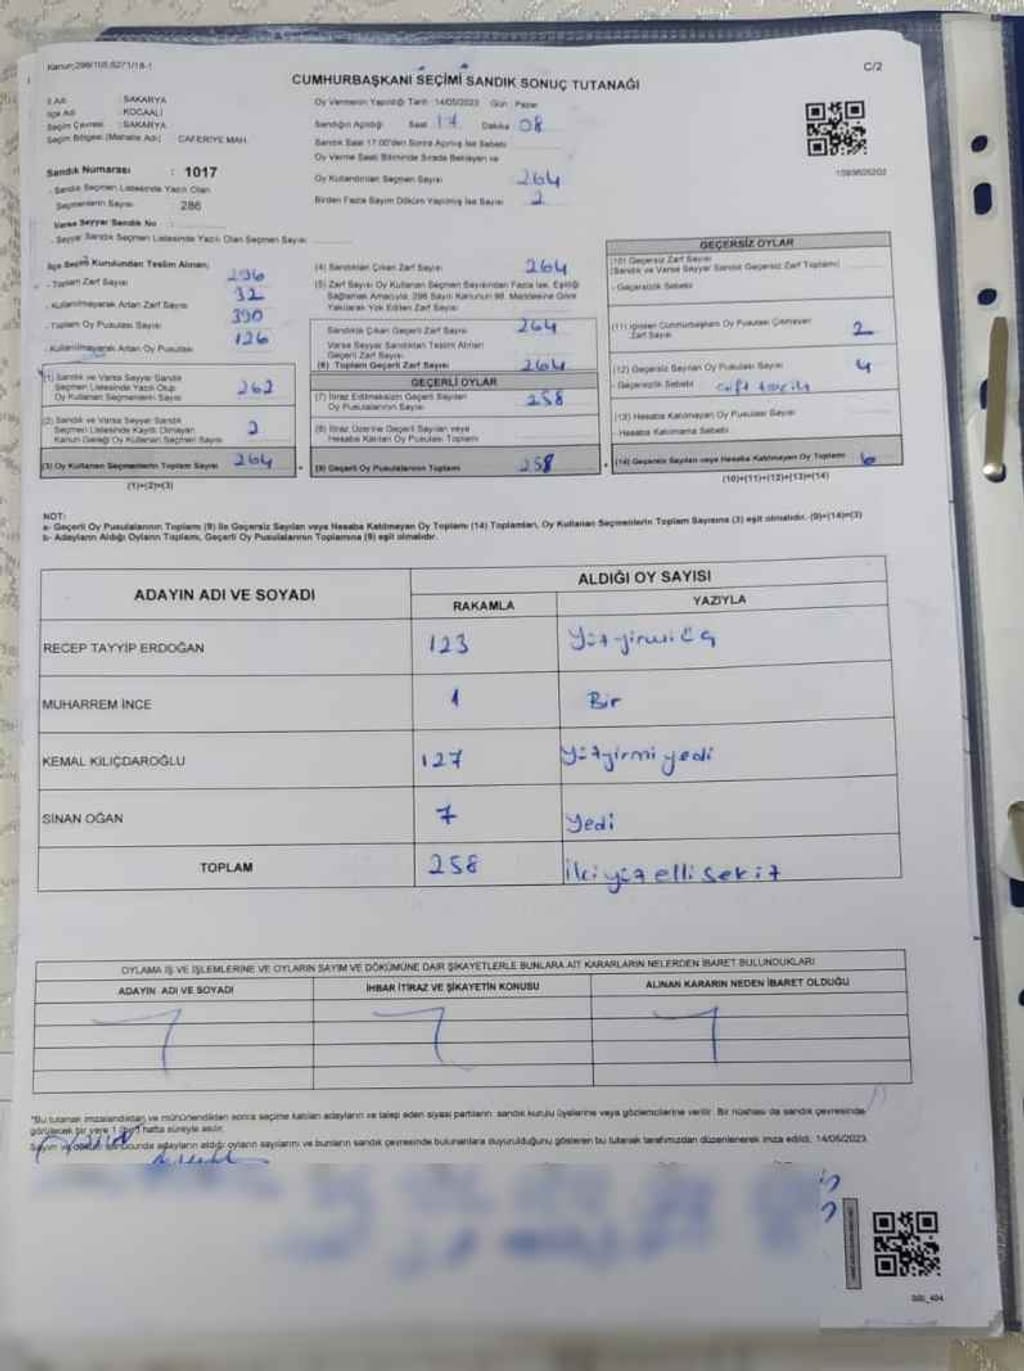 Kanun:298/105,6271/18-1
C/2
CUMHURBAŞKANI SEÇİMİ SANDIK SONUÇ TUTANAĞI
İl Adı : SAKARYA
İlçe Adı : KOCAALİ
Seçim Çevresi : SAKARYA
Seçim Bölgesi (Mahalle Adı) CAFERİYE MAH.
Sandık Numarası : 1017
- Sandık Seçmen Listesinde Yazılı Olan
Seçmenlerin Sayısı 286
Varsa Seyyar Sandık No :
- Seyyar Sandık Seçmen Listesinde Yazılı Olan Seçmen Sayısı
Oy Vermenin Yapıldığı Tarih 14/05/2023 Gün Pazar
Sandığın Açıldığı Saat 17 Dakika 08
Sandık Saat 17:00'den Sonra Açılmış İse Sebebi
Oy Verme Saati Bitiminde Sırada Bekleyen ve
Oy Kullandırılan Seçmen Sayısı 264
Birden Fazla Sayım Döküm Yapılmış İse Sayısı 2
İlçe Seçim Kurulundan Teslim Alınan;
- Toplam Zarf Sayısı 296
- Kullanılmayarak Artan Zarf Sayısı 32
- Toplam Oy Pusulası Sayısı 390
- Kullanılmayarak Artan Oy Pusulası 126
(1) Sandık ve Varsa Seyyar Sandık
Seçmen Listesinde Yazılı Olup
Oy Kullanan Seçmenlerin Sayısı 262
(2) Sandık ve Varsa Seyyar Sandık
Seçmen Listesinde Kayıtlı Olmayan
Kanun Gereği Oy Kullanan Seçmen Sayısı 2
(3) Oy Kullanan Seçmenlerin Toplam Sayısı 264
(1)+(2)=(3)
(4) Sandıktan Çıkan Zarf Sayısı 264
(5) Zarf Sayısı Oy Kullanan Seçmen Sayısından Fazla İse, Eşitliği
Sağlamak Amacıyla, 298 Sayılı Kanunun 98. Maddesine Göre
Yakılarak Yok Edilen Zarf Sayısı
Sandıktan Çıkan Geçerli Zarf Sayısı 264
Varsa Seyyar Sandıktan Teslim Alınan
Geçerli Zarf Sayısı
(6) Toplam Geçerli Zarf Sayısı 264
GEÇERLİ OYLAR
(7) İtiraz Edilmeksizin Geçerli Sayılan
Oy Pusulalarının Sayısı 258
(8) İtiraz Üzerine Geçerli Sayılan veya
Hesaba Katılan Oy Pusulası Toplamı
(9) Geçerli Oy Pusulalarının Toplamı 258
GEÇERSİZ OYLAR
(10) Geçersiz Zarf Sayısı
(Sandık ve Varsa Seyyar Sandık Geçersiz Zarf Toplamı)
- Geçersizlik Sebebi
(11) İçinden Cumhurbaşkanı Oy Pusulası Çıkmayan
Zarf Sayısı 2
(12) Geçersiz Sayılan Oy Pusulası Sayısı 4
- Geçersizlik Sebebi
(13) Hesaba Katılmayan Oy Pusulası Sayısı
- Hesaba Katılmama Sebebi
(14) Geçersiz Sayılan veya Hesaba Katılmayan Oy Toplamı 6
(10)+(11)+(12)+(13)=(14)
NOT:
a- Geçerli Oy Pusulalarının Toplamı (9) ile Geçersiz Sayılan veya Hesaba Katılmayan Oy Toplamı (14) Toplamları, Oy Kullanan Seçmenlerin Toplam Sayısına (3) eşit olmalıdır. (9)+(14)=(3)
b- Adayların Aldığı Oyların Toplamı, Geçerli Oy Pusulalarının Toplamına (9) eşit olmalıdır.
ADAYIN ADI VE SOYADI
ALDIĞI OY SAYISI
RAKAMLA YAZIYLA
RECEP TAYYİP ERDOĞAN 123 Yüzyirmi üç
MUHARREM İNCE 1 Bir
KEMAL KILIÇDAROĞLU 127 Yüzyirmi yedi
SİNAN OĞAN 7 Yedi
TOPLAM 258 İkiyüz elli sekiz
OYLAMA İŞ VE İŞLEMLERİNE VE OYLARIN SAYIM VE DÖKÜMÜNE DAİR ŞİKAYETLERLE BUNLARA AİT KARARLARIN NELERDEN İBARET BULUNDUKLARI
ADAYIN ADI VE SOYADI İHBAR İTİRAZ VE ŞİKAYETİN KONUSU ALINAN KARARIN NEDEN İBARET OLDUĞU
*Bu tutanak imzalandıktan ve mühürlendikten sonra seçime katılan adayların ve talep eden siyasi partilerin sandık kurulu üyelerine veya gözlemcilerine verilir. Bir nüshası da sandık çevresinde
görülecek bir yere 1 (bir) hafta süreyle asılır.
adayların aldığı oyların sayılarını ve bunların sandık çevresinde bulunanlara duyurulduğunu gösteren bu tutanak tarafımızdan düzenlenerek imza edildi. 14/05/2023